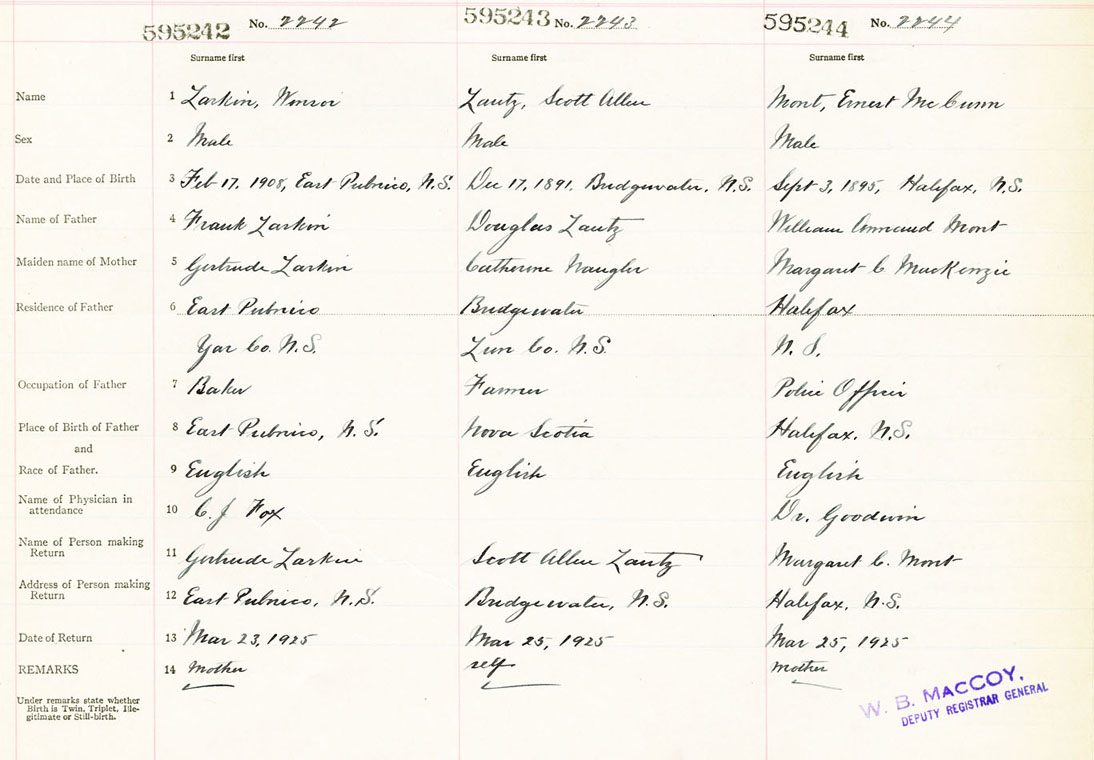 595242 No. 2242 595243 No. 2243 595244 No. 2244
Surname first Surname first Surname first
Name 1 Larkin, Winsor Zautz, Scott Allen Mont, Ernest McCunn
Sex 2 Male Male Male
Date and Place of Birth 3 Feb 17, 1908, East Pubnico, N.S. Dec 17, 1891, Bridgewater, N.S. Sept 3, 1895, Halifax, N.S.
Name of Father 4 Frank Larkin Douglas Zautz William Mont
Maiden name of Mother 5 Gertrude Larkin Catherine Naugler Margaret C MacKenzie
Residence of Father 6 East Pubnico Bridgewater Halifax
Yar Co. N.S. Lun Co. N.S. N.S.
Occupation of Father 7 Baker Farmer Police Officer
Place of Birth of Father 8 East Pubnico, N.S. Nova Scotia Halifax, N.S.
and
Race of Father. 9 English English English
Name of Physician in
attendance 10 C. J Fox Dr. Goodwin
Name of Person making
Return 11 Gertrude Larkin Scott Allen Zautz Margaret C. Mont
Address of Person making
Return 12 East Pubnico, N.S. Bridgewater, N.S. Halifax, N.S.
Date of Return 13 Mar 23, 1925 Mar 25, 1925 Mar 25, 1925
REMARKS 14 Mother self mother
Under remarks state whether
Birth is Twin, Triplet, Ille-
gitimate or Still-birth.
W. B. MACCOY,
DEPUTY REGISTRAR GENERAL